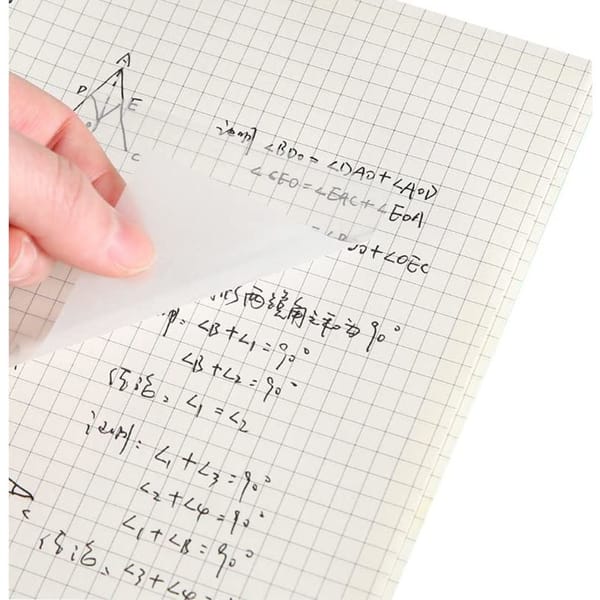 A
D
E
C
证明 ∠BDO = ∠DAO + ∠AOD
∠CEO = ∠EAC + ∠EOA
+∠OEC
两锐角之和为90°
∠B+∠1=90°
∠B+∠2=90°
结论: ∠1=∠2
证明: ∠1+∠3=90°
∠2+∠4=90°
∠1+∠B=90°
结论: ∠3+∠4=